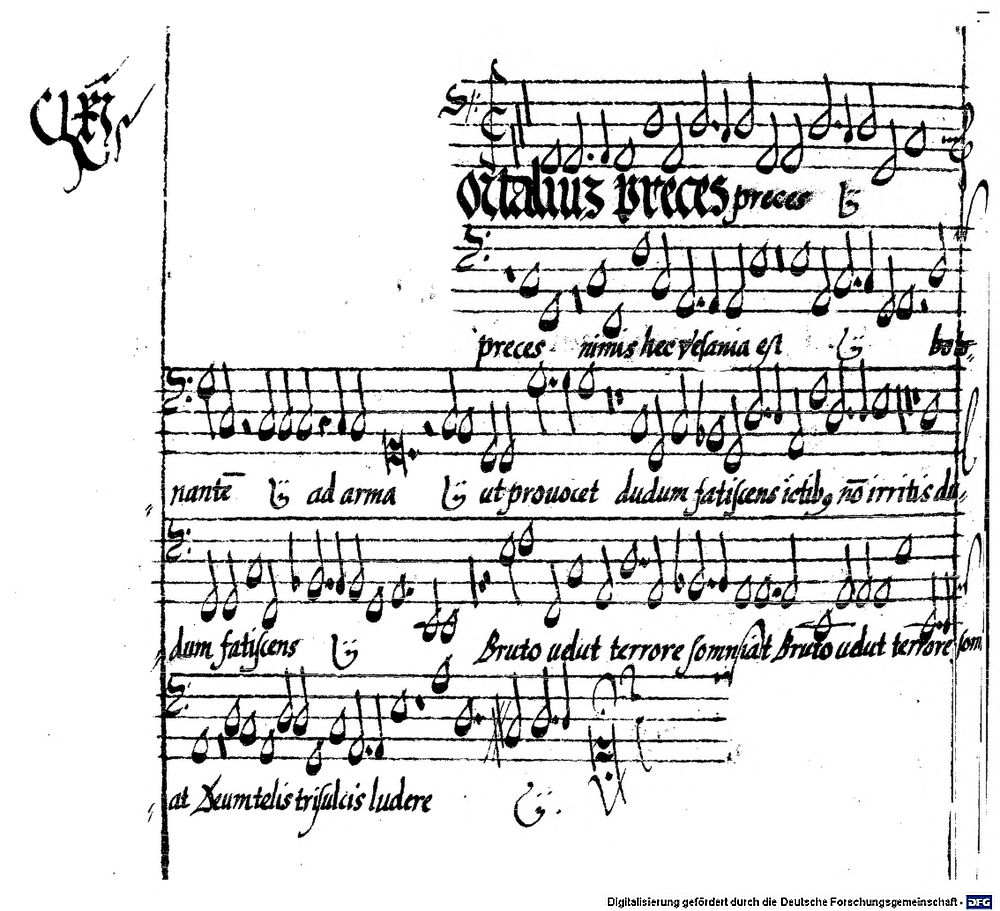 ortalium preces preces ij
preces nimis hec vesania est ij bob-
nantē ij ad arma ij ut provocet dudum fatiscens ictibꝯ nō irritis du-
dum fatiscens ij Bruto uelut terrore somniāt Bruto uelut terrore som
at Deum telis trisulcis ludere ij.
Digitalisierung gefördert durch die Deutsche Forschungsgemeinschaft - DFG